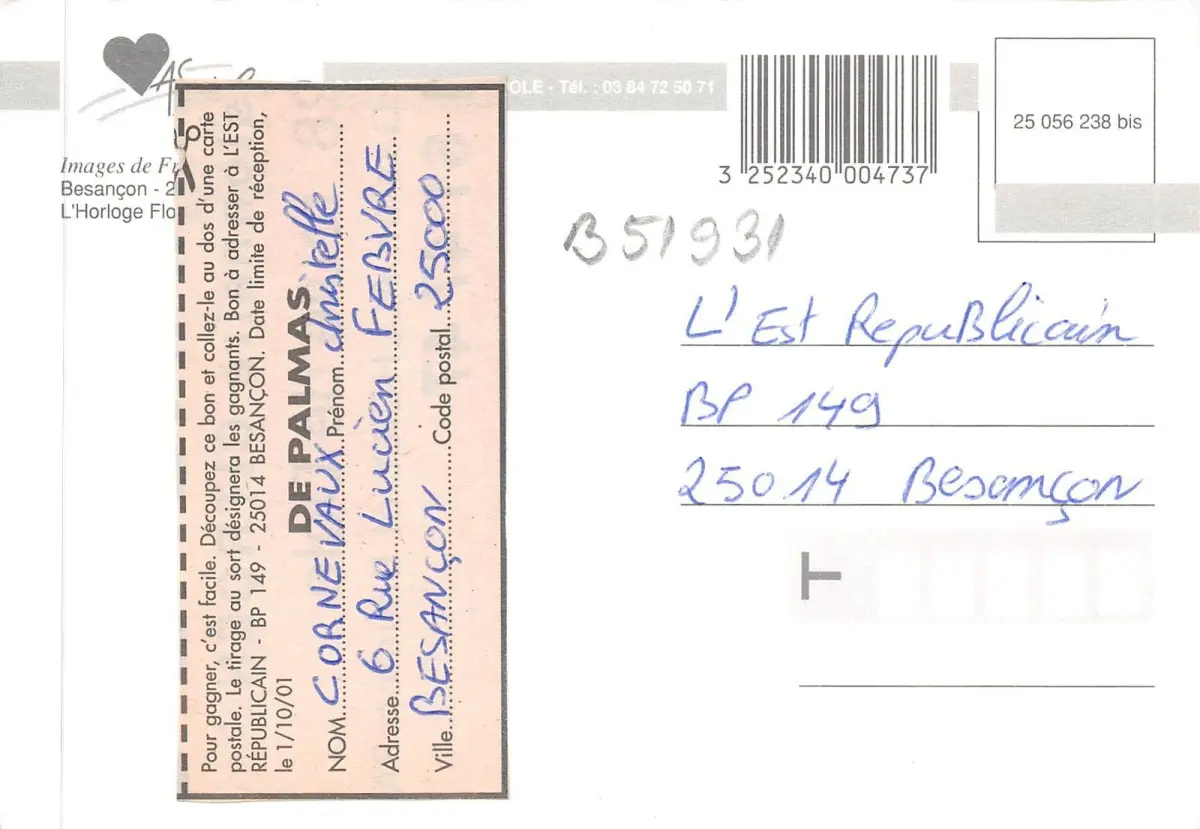 OLE - Tél. : 03 84 72 50 71
Images de Fr
Besançon - 2
L'Horloge Flo
3 252340 004737
25 056 238 bis
B51931
L'Est RepuBlicain
BP 149
25014 Besançon
T
Pour gagner, c'est facile. Découpez ce bon et collez-le au dos d'une carte
postale. Le tirage au sort désignera les gagnants. Bon à adresser à L'EST
RÉPUBLICAIN - BP 149 - 25014 BESANÇON. Date limite de réception,
le 1/10/01
DE PALMAS
NOM CORNEVAUX Prénom Christelle
Adresse 6 Rue Lucien FEBVRE
Ville BESANÇON Code postal 25000